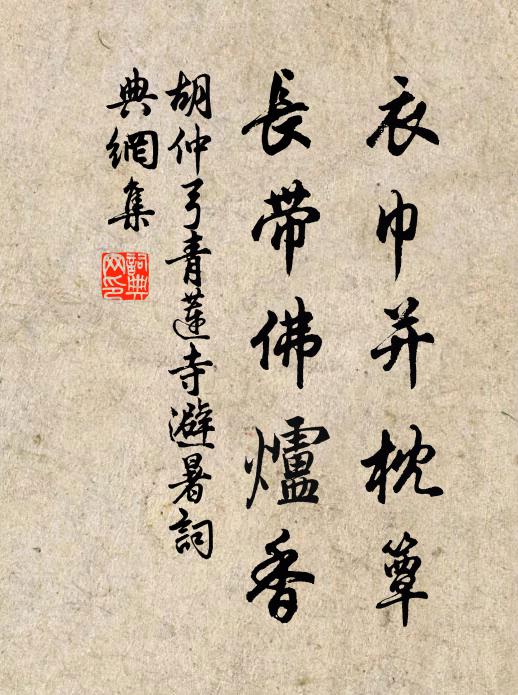 衣巾并枕簟
長帶佛爐香
胡仲弓青蓮寺避暑詞
典網集
詞典網印